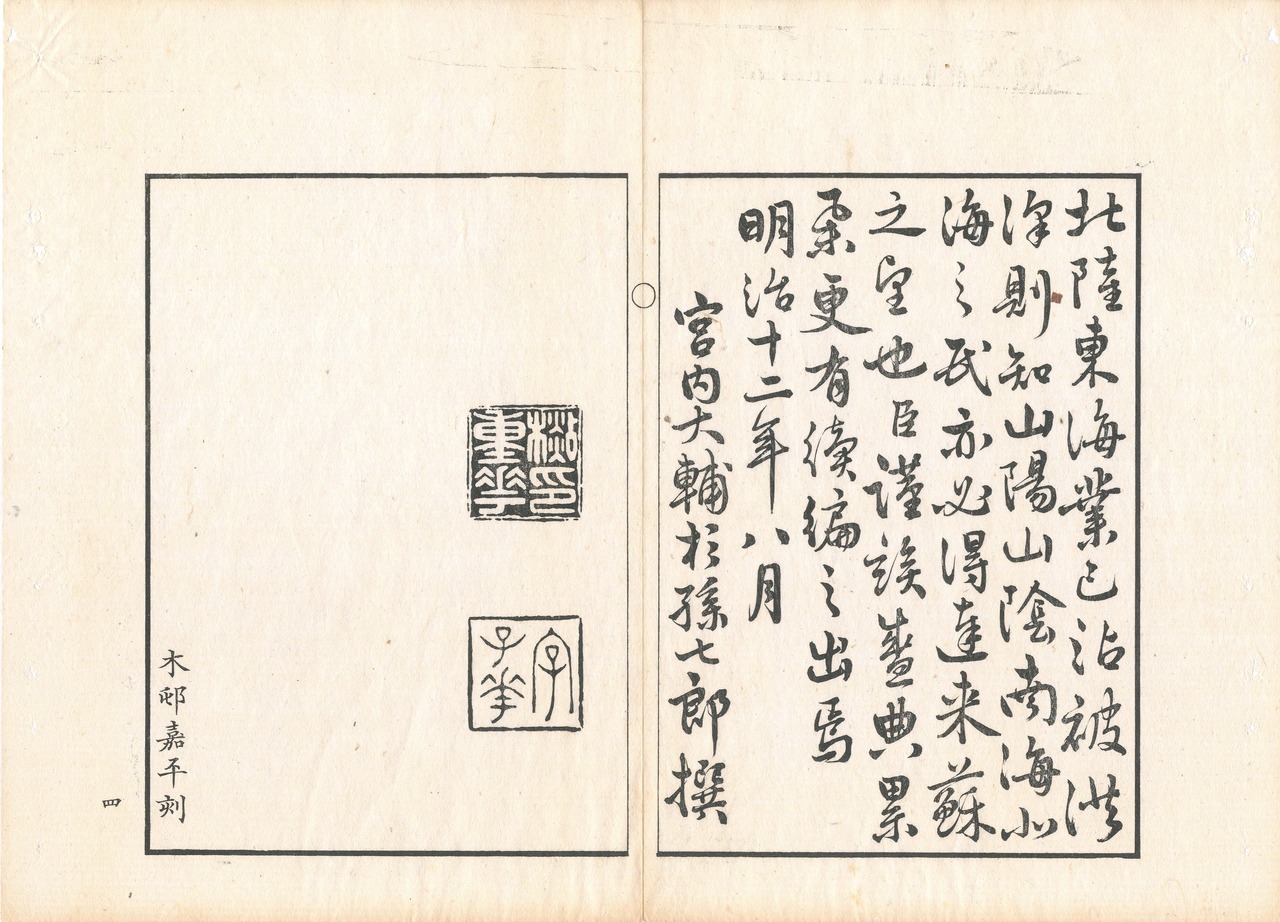 北陸東海業已沾被洪
澤則知山陽山陰南海北
海之民亦必得達来蘇
之望也臣謹竢盛典累
更有續編之出焉
明治十二年八月
宮内大輔杉孫七郎撰
印
重華
字
子華
木邨嘉平刻
四